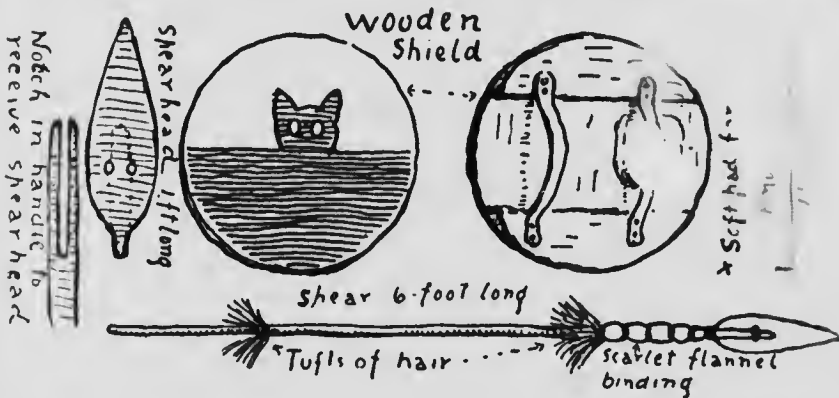 Notch in handle to
receive shearhead
Shearhead 1ft long
wooden
Shield
x Soft pad for
shear 6-foot long
Tufts of hair
scarlet flannel
binding